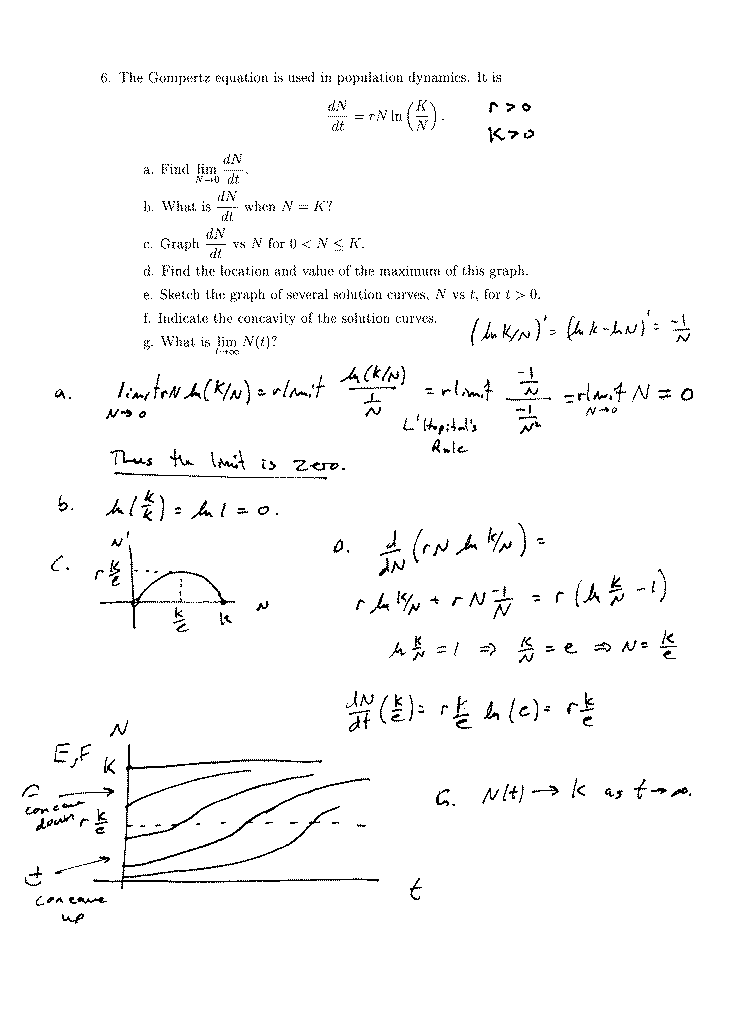 6. The Gompertz equation is used in population dynamics. It is
dN/dt = rN ln (K/N) .
r > 0
K > 0
a. Find lim N→0 dN/dt.
b. What is dN/dt when N = K?
c. Graph dN/dt vs N for 0 < N ≤ K.
d. Find the location and value of the maximum of this graph.
e. Sketch the graph of several solution curves, N vs t, for t > 0.
f. Indicate the concavity of the solution curves.
g. What is lim t→∞ N(t)?
(ln K/N)' = (ln K - ln N)' = -1/N
a. limit N→0 rN ln(K/N) = r limit ln(K/N) / (1/N) = r limit (-1/N) / (-1/N²) = r limit N→0 N = 0
L'Hopital's
Rule
Thus the limit is zero.
b. ln(K/K) = ln 1 = 0.
C. N'
r K/e
K/e K N
D. d/dN (rN ln K/N) =
r ln K/N + r N -1/N = r (ln K/N - 1)
ln K/N = 1 ⇒ K/N = e ⇒ N = K/e
dN/dt (K/e) = r K/e ln(e) = r K/e
E,F
N
K
concave
down
r K/e
+
concave
up
t
G. N(t) → K as t → ∞.